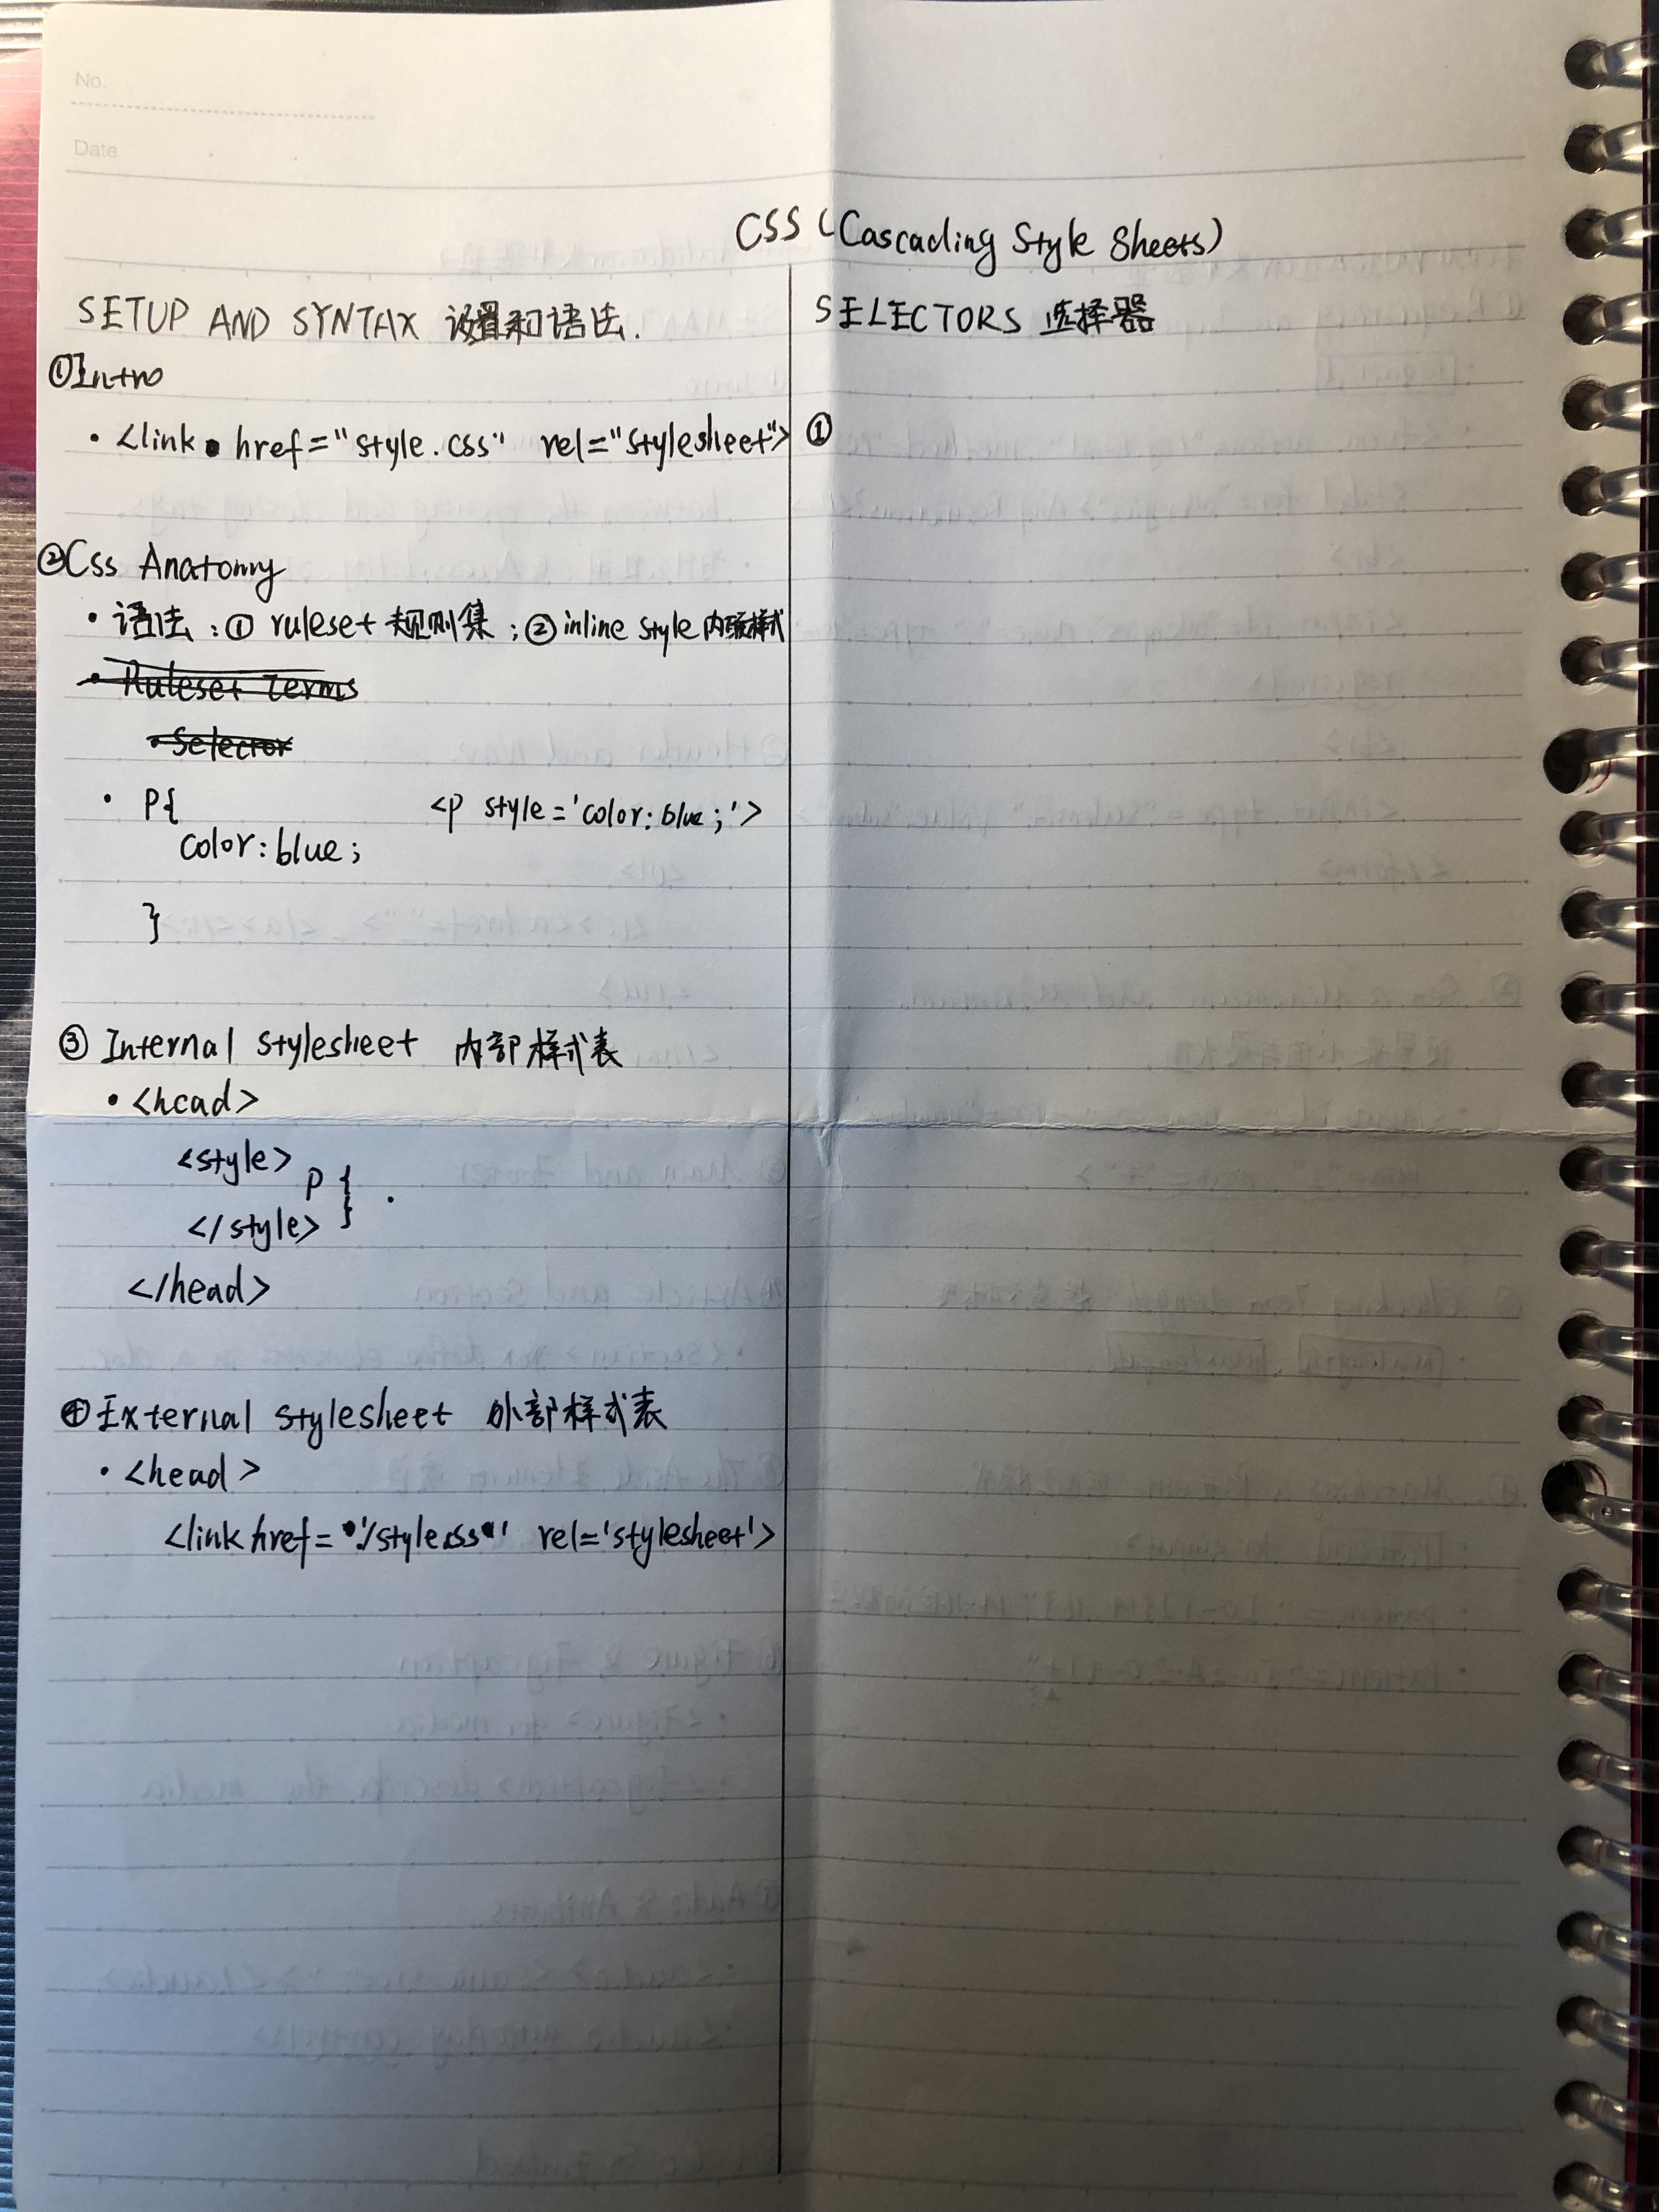 No.
Date
CSS (Cascading Style Sheets)
SETUP AND SYNTAX 设置和语法.
①Intro
• <link href="style.css" rel="stylesheet">
②Css Anatomy
• 语法:① ruleset 规则集;② inline style 内联样式
• Ruleset Terms
• Selector
• P{ <p style='color:blue;'>
color:blue;
}
③ Internal stylesheet 内部样式表
• <head>
<style>
P {
</style> }
</head>
④External stylesheet 外部样式表
• <head>
<link href='./style.css' rel='stylesheet'>
SELECTORS 选择器
①